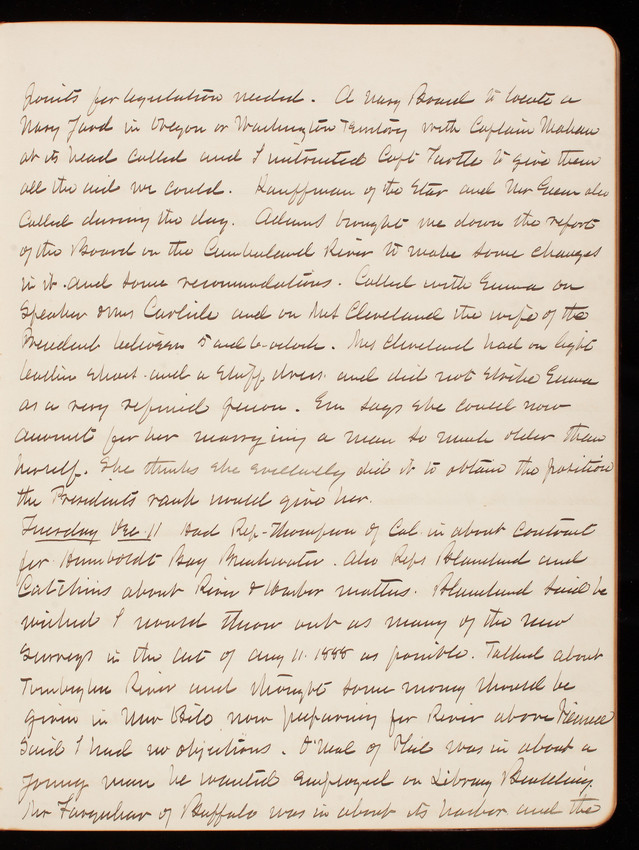 points for legislation needed. A Navy Board to locate a
Navy Yard in Oregon or Washington Territory with Captain Mahan
at its head called and I instructed Capt Turtle to give them
all the aid we could. Kauffman of the Star and Mr Green also
called during the day. Adams brought me down the report
of the Board on the Cumberland River to make some changes
in it and some recommendations. Called with Emma on
Speaker & Mrs Carlisle and on Mrs Cleveland the wife of the
President between 5 and 6 oclock. Mrs Cleveland had on light
waist and a stuff dress and did not strike Emma
as a very refined person. Em says she could now
account for her marrying a man so much older than
herself. She thinks she did it to obtain the position
the Presidents rank would give her.
Tuesday Dec 11 Had Rep. Thompson of Cal. in about contract
for Humboldt Bay Breakwater. Also Reps Blanchard and
Catchings about River & Harbor matters. Blanchard said he
wished I would throw out as many of the new
surveys in the act of Aug 11. 1888 as possible. Talked about
Tombigbee River and thought some money should be
given in new Bill now preparing for River above Vienna
Said I had no objections. O'Neal of was in about a
young man he wanted employed on Library Building.
Mr Farquhar of Buffalo was in about its harbor and the